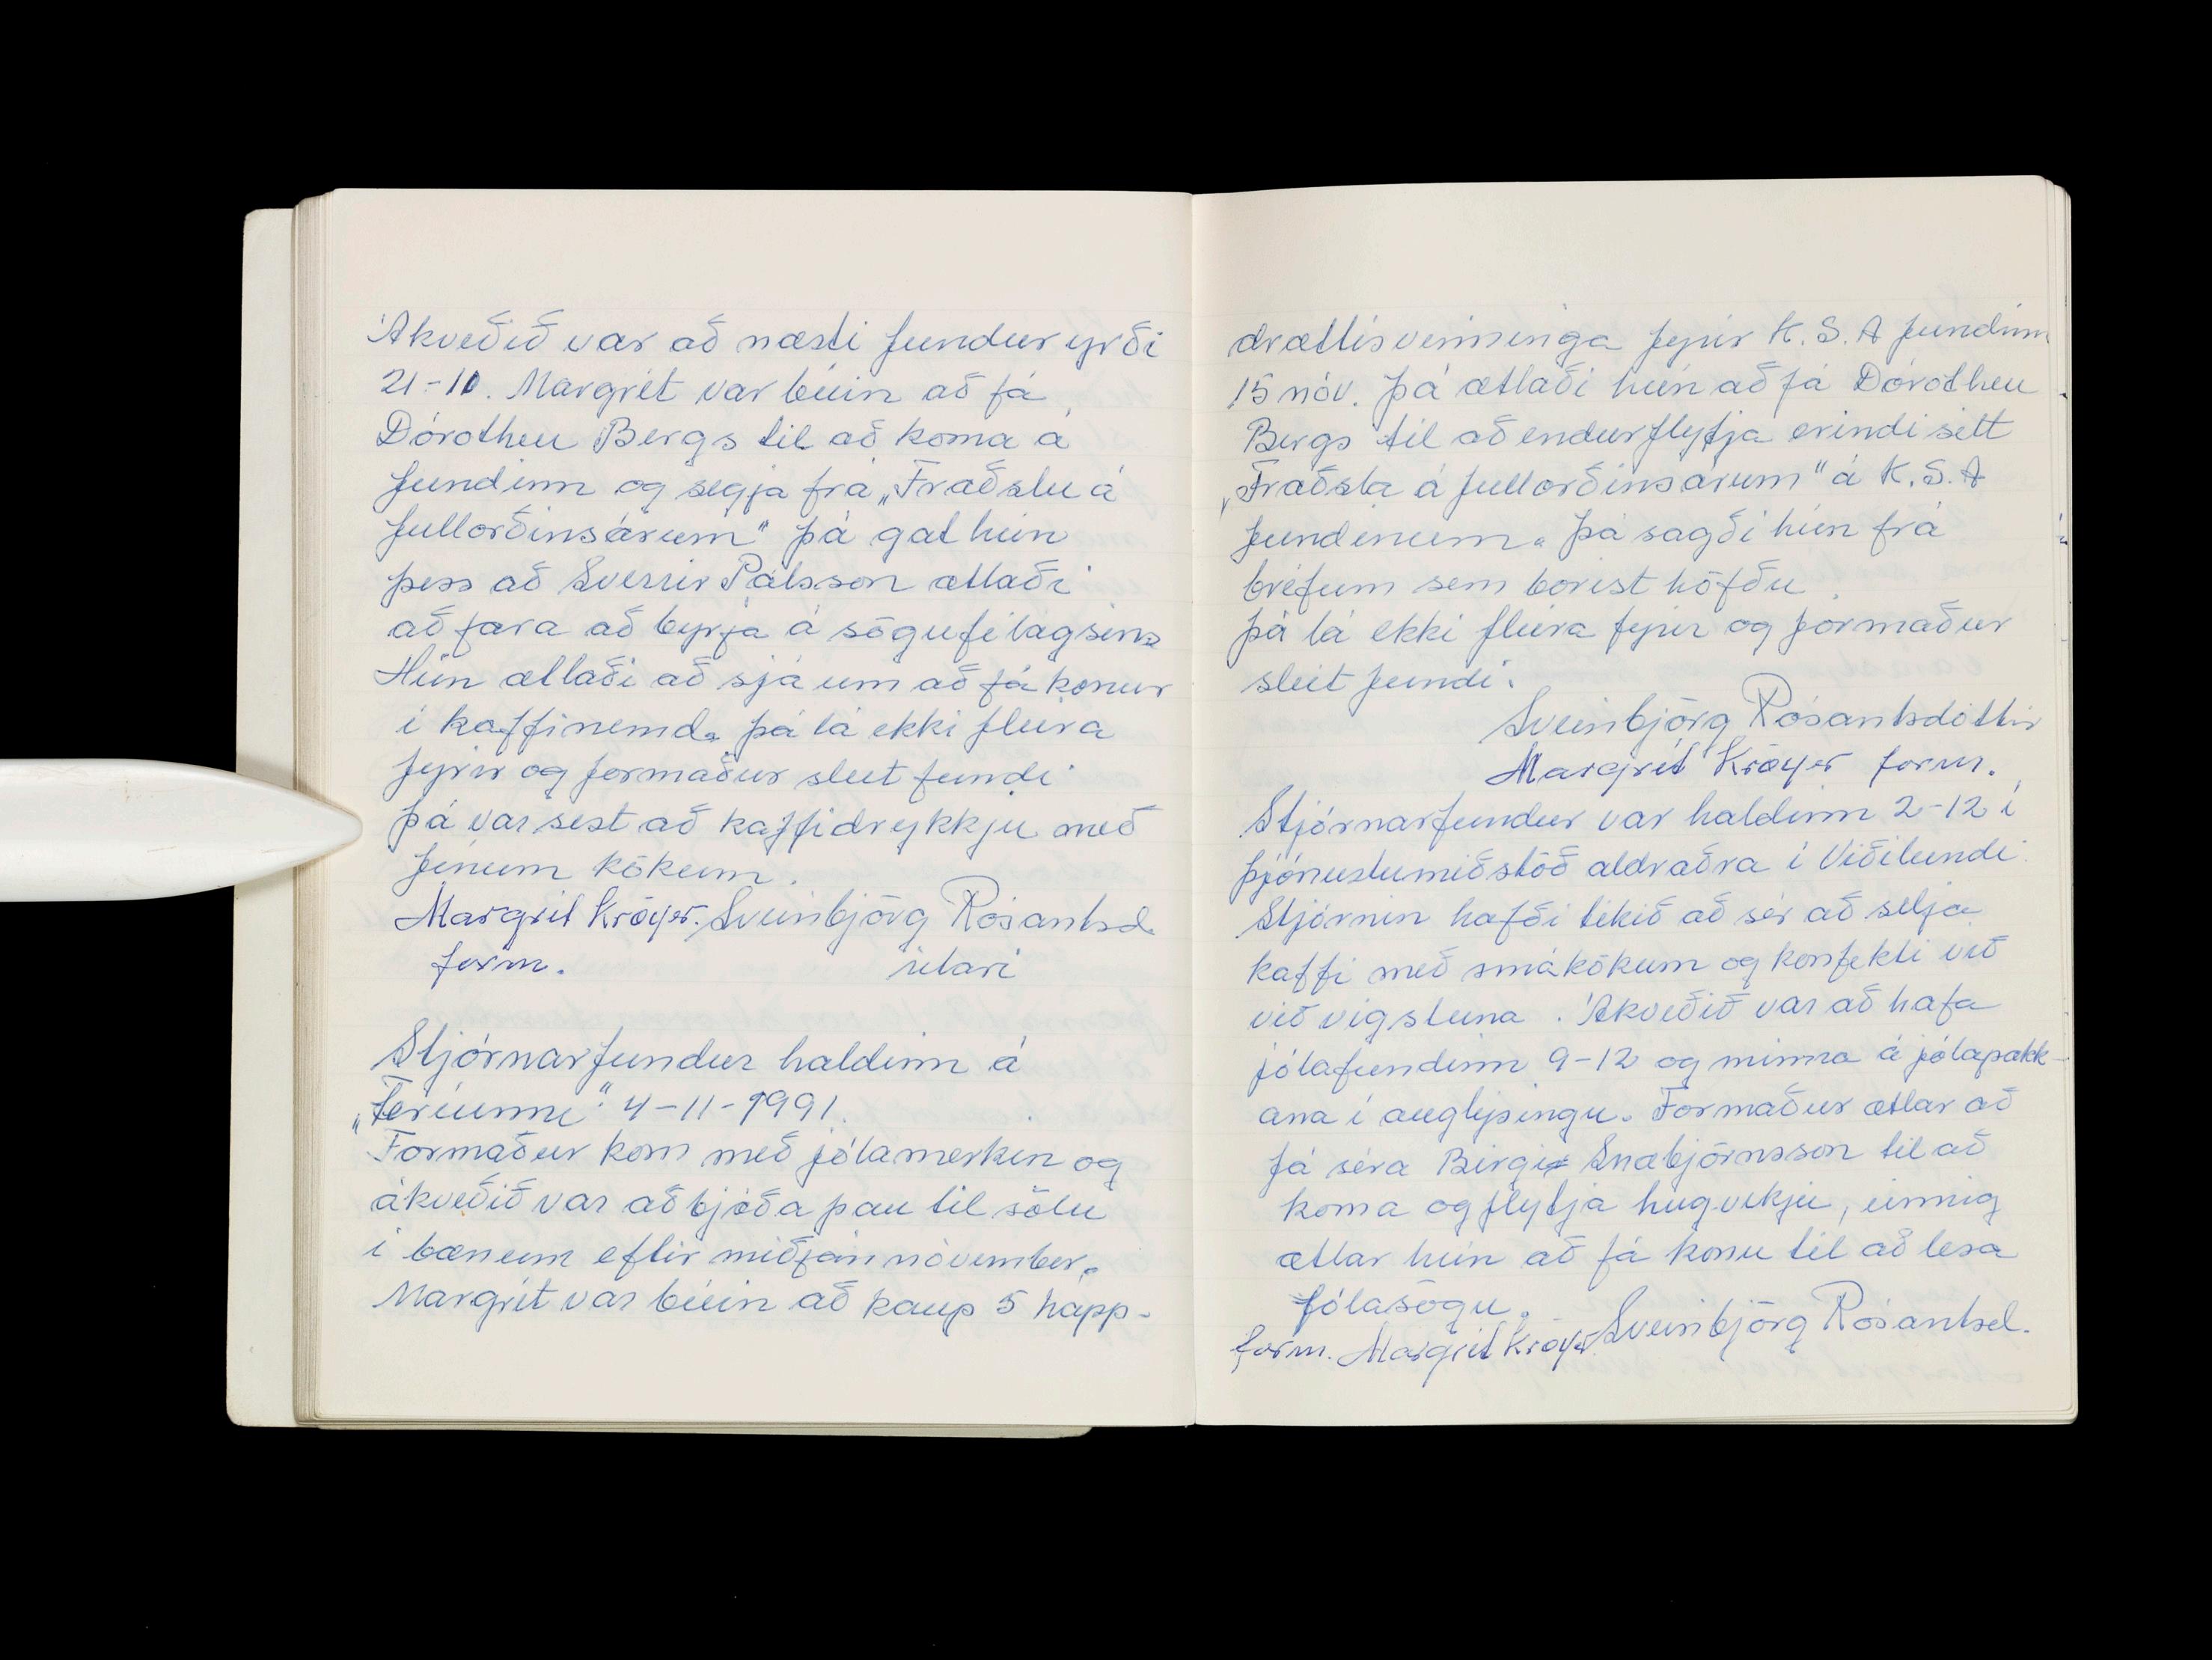 Ákveðið var að næsti fundur yrði
21-10. Margrét var búin að fá
Dórotheu Bergs til að koma á
fundinn og segja frá „Fræðslu á
fullorðinsárum" þá gat hún
þess að Sverrir Pálsson ætlaði
að fara að byrja á sögu félagsins
Hún ætlaði að sjá um að fá konur
í kaffinemd. þá lá ekki fleira
fyrir og formaður sleit fundi
þá var sest að kaffidrykkju með
fínum kökum.
Margrét Kröyer. Sveinbjörg Rósantsd.
form. ritari
Stjórnarfundur haldinn á
„Teríunni" 4-11-1991.
Formaður kom með jólamerkin og
ákveðið var að bjóða þau til sölu
í bænum eftir miðjan nóvember.
Margrét var búin að kaup 5 happ-
drættisvinninga fyrir K.S.A fundinn
15 nóv. þá ætlaði hún að fá Dórotheu
Bergs til að endurflytja erindi sitt
„Fræðsla á fullorðinsárum" á K.S.A
fundinum. þá sagði hún frá
bréfum sem borist höfðu
þá lá ekki fleira fyrir og formaður
sleit fundi.
Sveinbjörg Rósantsdóttir
Margrét Kröyer form.
Stjórnarfundur var haldinn 2-12 í
þjónustumiðstöð aldraðra í Víðilundi
Stjórnin hafði tekið að sér að selja
kaffi með smákökum og konfekti við
við vígsluna. Ákveðið var að hafa
jólafundinn 9-12 og minna á jólapakk-
ana í auglýsingu. Formaður ætlar að
fá séra Birgir Snæbjörnsson til að
koma og flytja hugvekju, einnig
ætlar hún að fá konu til að lesa
jólasögu.
form. Margrét Kröyer Sveinbjörg Rósantsd.